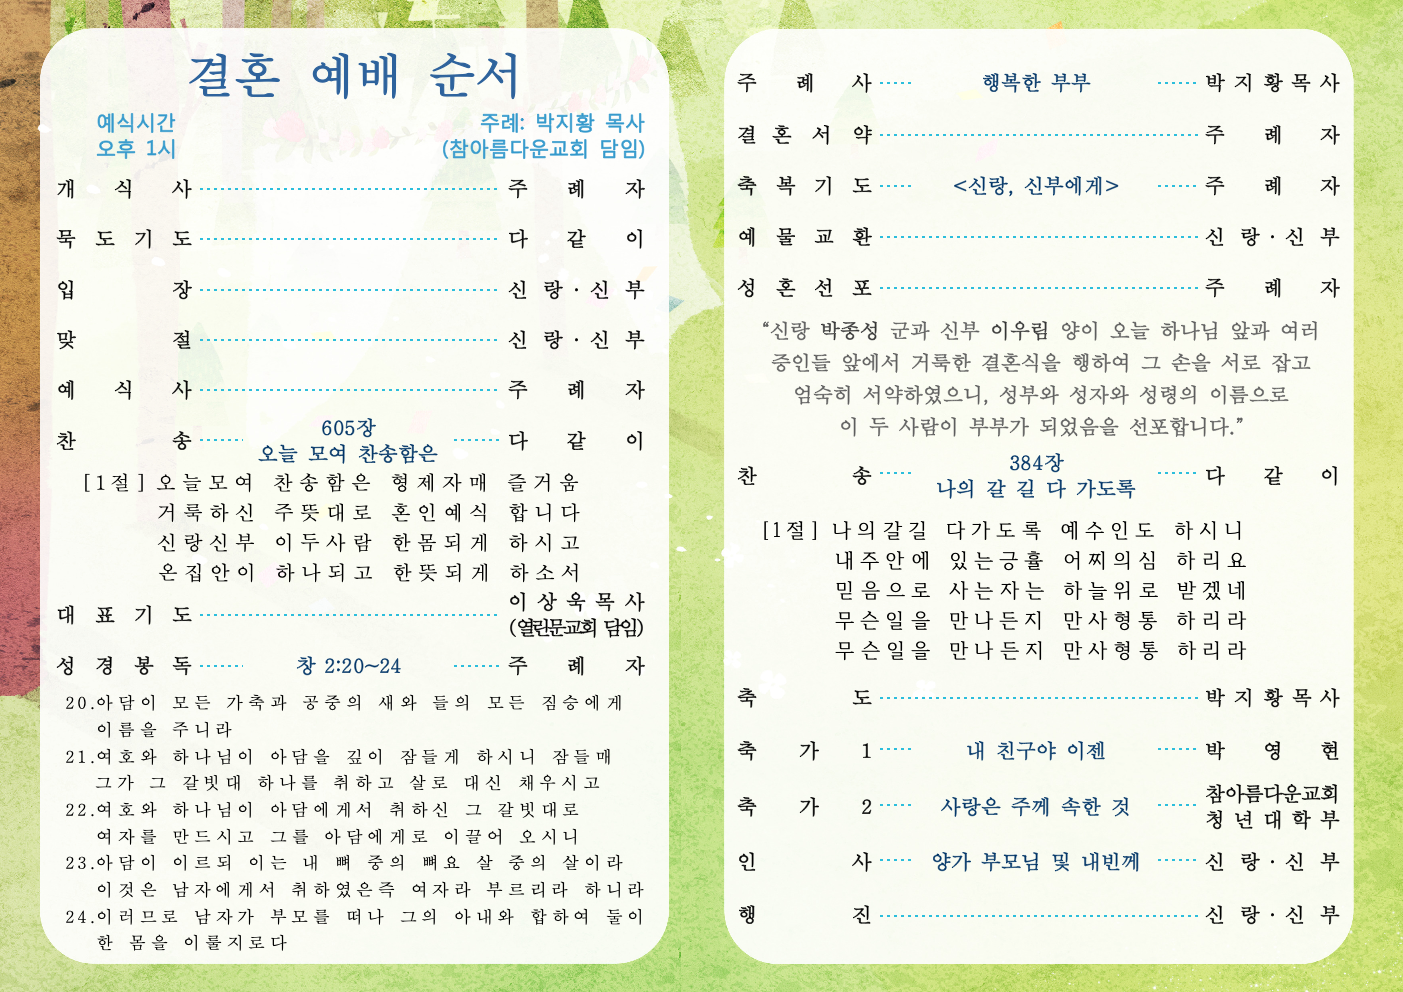 결혼 예배 순서
예식시간
오후 1시
주례: 박지황 목사
(참아름다운교회 담임)
개 식 사 주 례 자
묵 도 기 도 다 같 이
입 장 신 랑 · 신 부
맞 절 신 랑 · 신 부
예 식 사 주 례 자
찬 송 605장 다 같 이
오늘 모여 찬송함은
[1절] 오늘모여 찬송함은 형제자매 즐거움
거룩하신 주뜻대로 혼인예식 합니다
신랑신부 이두사람 한몸되게 하시고
온집안이 하나되고 한뜻되게 하소서
대 표 기 도 이 상 욱 목 사
(열린문교회 담임)
성 경 봉 독 창 2:20~24 주 례 자
20.아담이 모든 가축과 공중의 새와 들의 모든 짐승에게
이름을 주니라
21.여호와 하나님이 아담을 깊이 잠들게 하시니 잠들매
그가 그 갈빗대 하나를 취하고 살로 대신 채우시고
22.여호와 하나님이 아담에게서 취하신 그 갈빗대로
여자를 만드시고 그를 아담에게로 이끌어 오시니
23.아담이 이르되 이는 내 뼈 중의 뼈요 살 중의 살이라
이것은 남자에게서 취하였은즉 여자라 부르리라 하니라
24.이러므로 남자가 부모를 떠나 그의 아내와 합하여 둘이
한 몸을 이룰지로다
주 례 사 행복한 부부 박 지 황 목 사
결 혼 서 약 주 례 자
축 복 기 도 <신랑, 신부에게> 주 례 자
예 물 교 환 신 랑 · 신 부
성 혼 선 포 주 례 자
“신랑 박종성 군과 신부 이우림 양이 오늘 하나님 앞과 여러
증인들 앞에서 거룩한 결혼식을 행하여 그 손을 서로 잡고
엄숙히 서약하였으니, 성부와 성자와 성령의 이름으로
이 두 사람이 부부가 되었음을 선포합니다.”
찬 송 384장 다 같 이
나의 갈 길 다 가도록
[1절] 나의갈길 다가도록 예수인도 하시니
내주안에 있는긍휼 어찌의심 하리요
믿음으로 사는자는 하늘위로 받겠네
무슨일을 만나든지 만사형통 하리라
무슨일을 만나든지 만사형통 하리라
축 도 박 지 황 목 사
축 가 1 내 친구야 이젠 박 영 현
축 가 2 사랑은 주께 속한 것 참아름다운교회
청 년 대 학 부
인 사 양가 부모님 및 내빈께 신 랑 · 신 부
행 진 신 랑 · 신 부